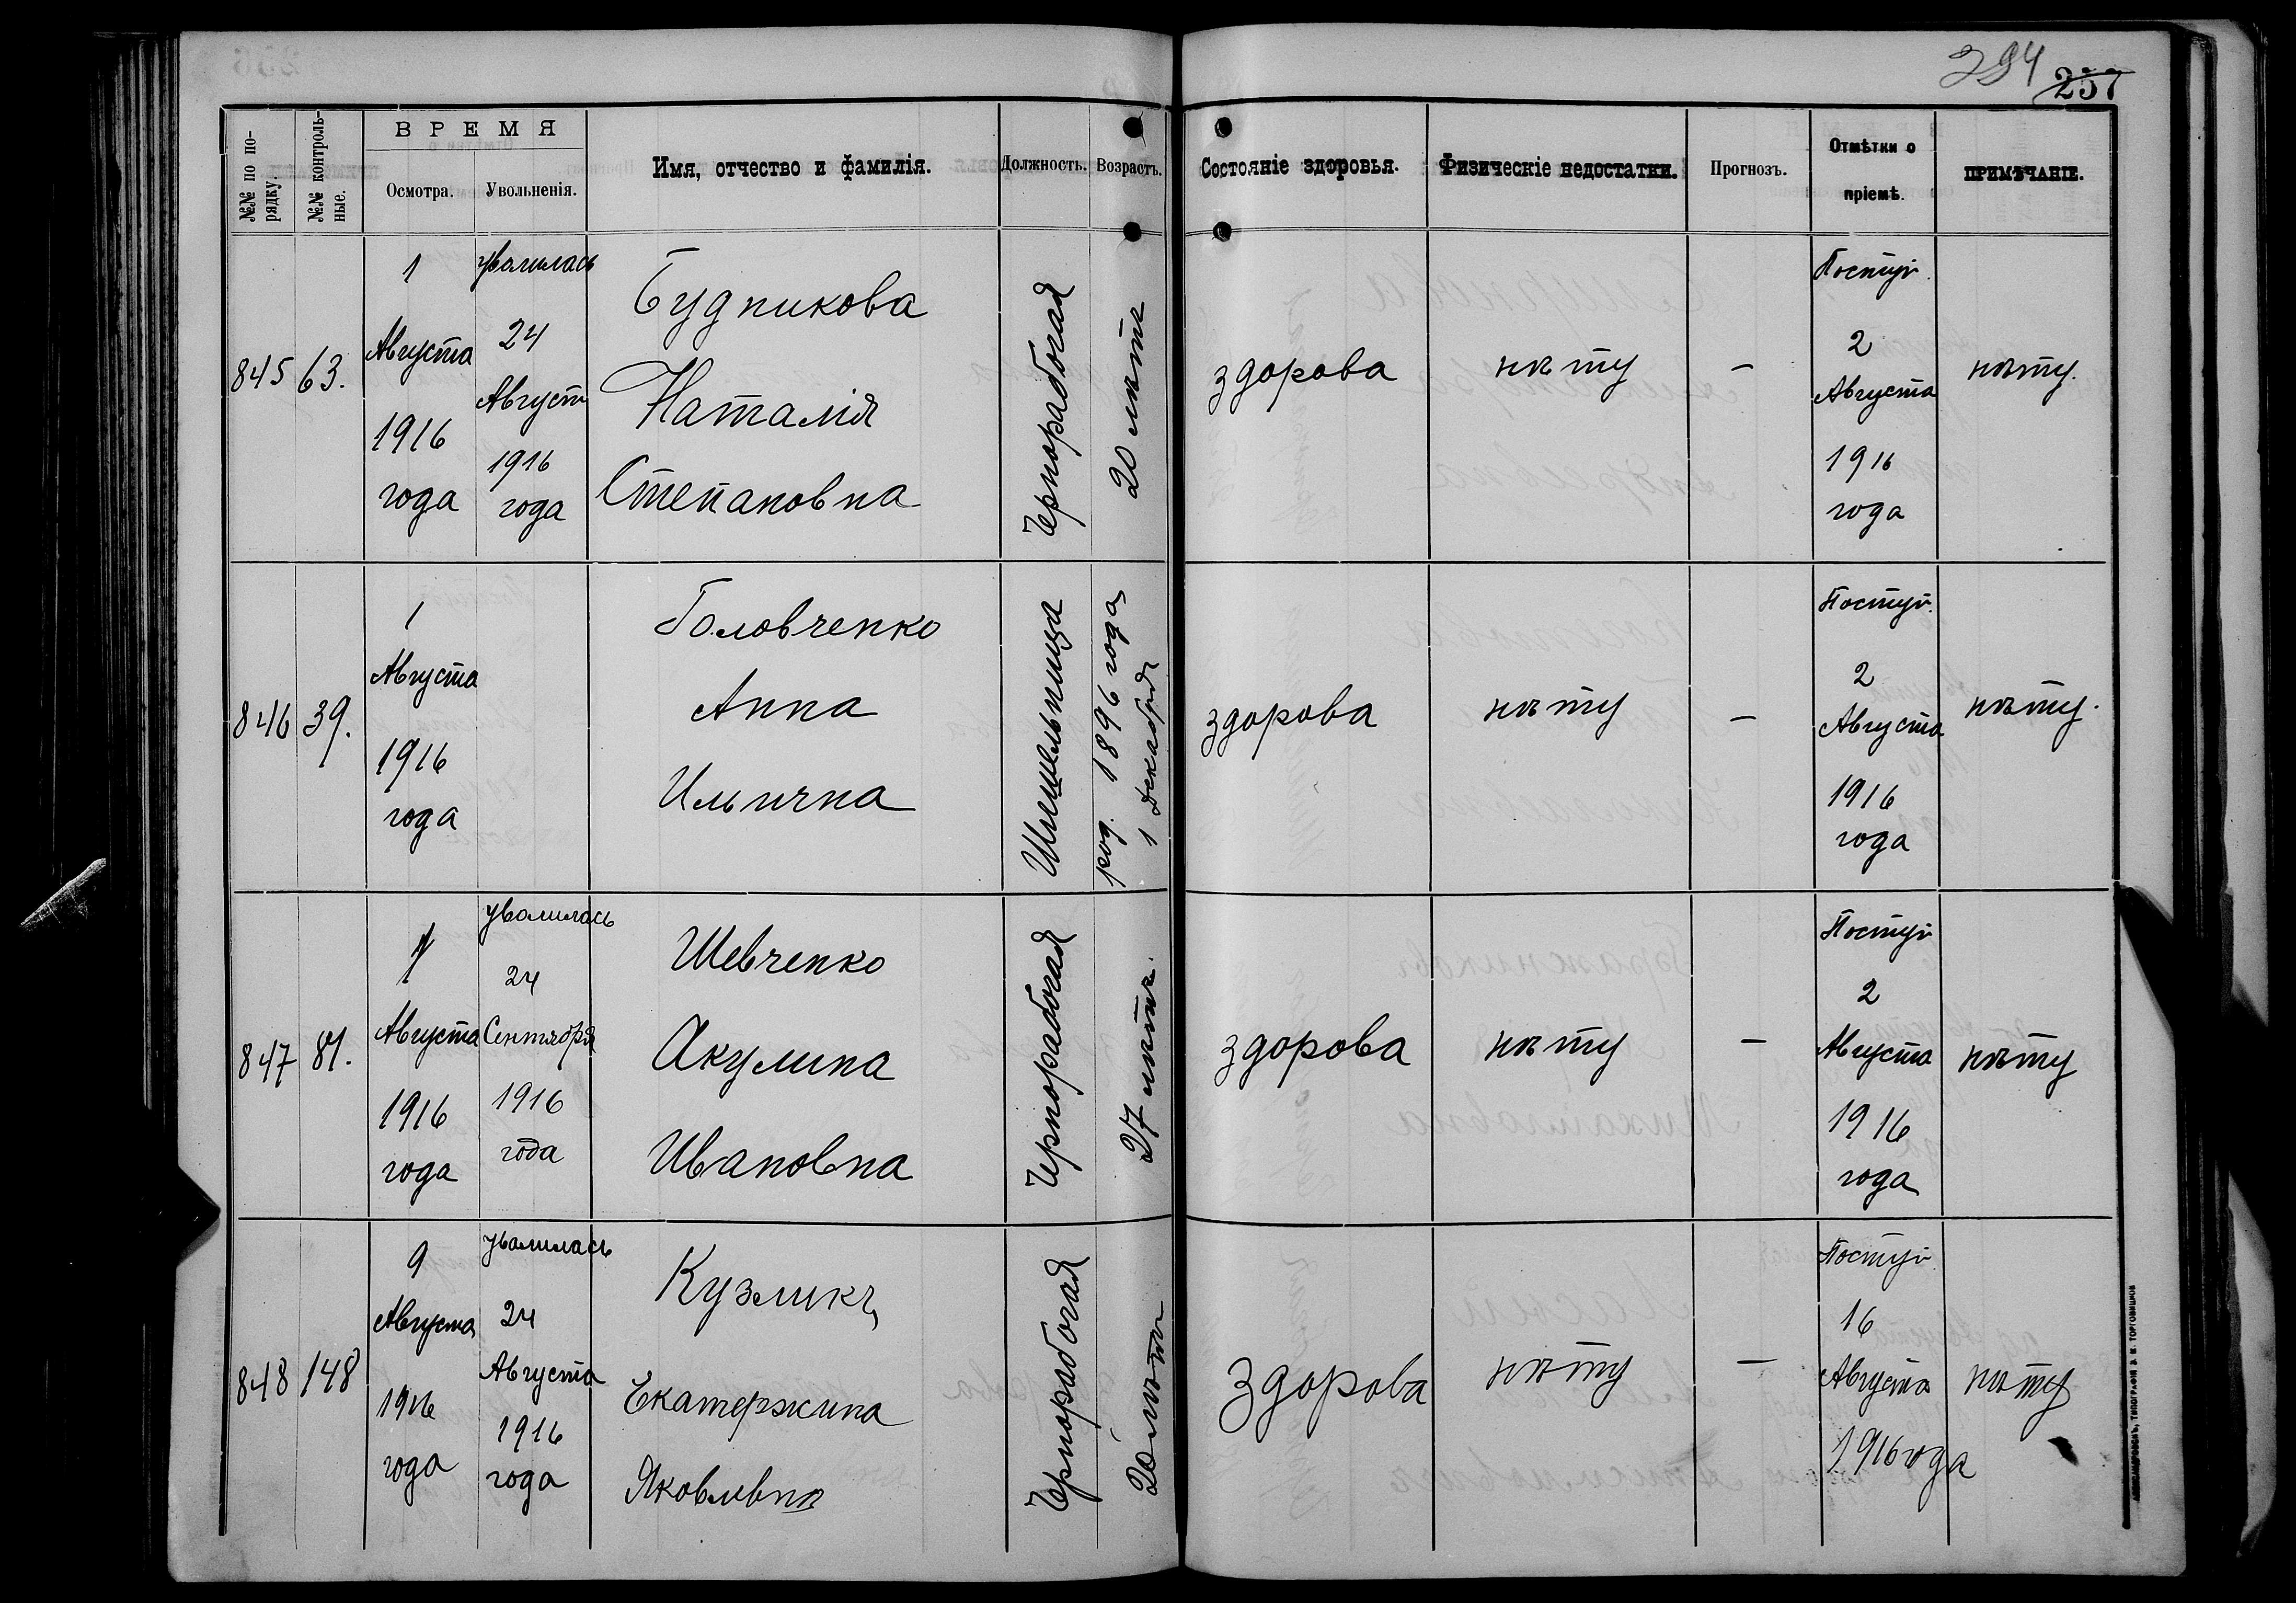 294
257
№№ по по-
рядку.
№№ контроль-
ные.
ВРЕМЯ
Осмотра.
Увольненія.
Имя, отчество и фамилія.
Должность.
Возрастъ.
Состояніе здоровья.
Физическіе недостатки.
Прогнозъ.
Отмѣтки о
пріемѣ.
ПРИМѢЧАНІЕ.
845
63.
1
Августа
1916
года
уволилась
24
Август
1916
года
Будникова
Наталія
Степановна
Чернорабочая
20 лѣтъ
здорова
нѣту
—
Поступ.
2
Августа
1916
года
нѣту.
846
39.
1
Августа
1916
года
Головченко
Анна
Ильична
род. 1896 года
1 декабря
здорова
нѣту
—
Поступ.
2
Августа
1916
года
нѣту.
847
81.
1
Августа
1916
года
уволилась
24
Сентября
1916
года
Шевченко
Акулина
Ивановна
Чернорабочая
27 лѣтъ.
здорова
нѣту
—
Поступ
2
Августа
1916
года
нѣту
848
148
9
Августа
1916
года
уволилась
24
Августа
1916
года
Екатержина
Яковлевна
Чернорабочая
20 лѣтъ
здорова
нѣту
—
Поступ
16
Августа
1916 года
нѣту